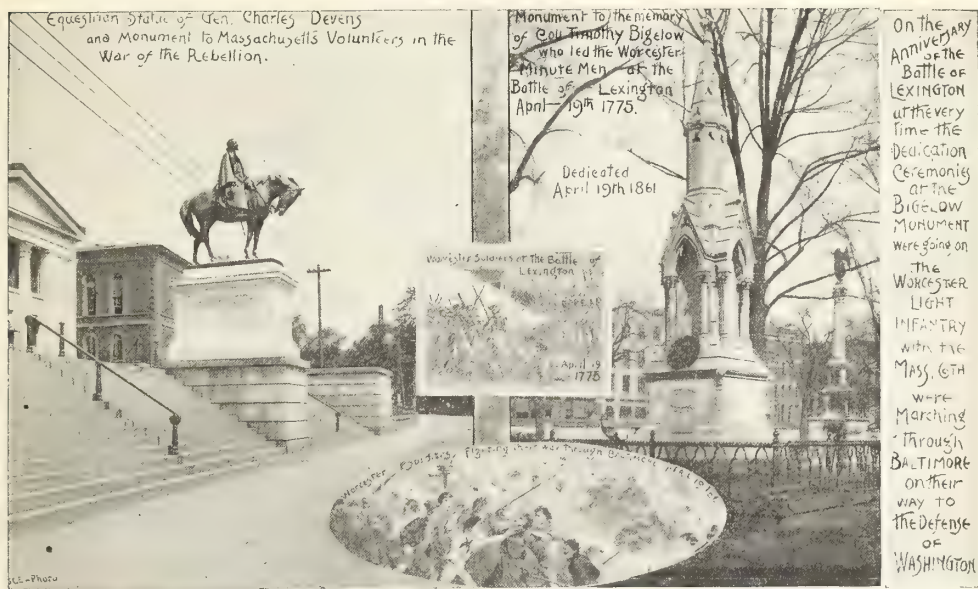 Equestrian Statue of Gen. Charles Devens
and Monument to Massachusetts Volunteers in the
War of the Rebellion.
Monument to the memory
of Col. Timothy Bigelow
who led the Worcester
Minute Men at the
Battle of Lexington
April 19th 1775.
Dedicated
April 19th 1861
Worcester Soldiers at the Battle of
Lexington
April 19
1775
Worcester Soldiers, Fighting their way through Baltimore
On the
Anniversary
of the
Battle of
LEXINGTON
at the very
Time the
Dedication
Ceremonies
at the
BIGELOW
MONUMENT
were going on
the
WORCESTER
LIGHT
INFANTRY
with the
MASS. 6TH
were
Marching
through
BALTIMORE
on their
WAY TO
the Defense
OF
WASHINGTON
-Photo